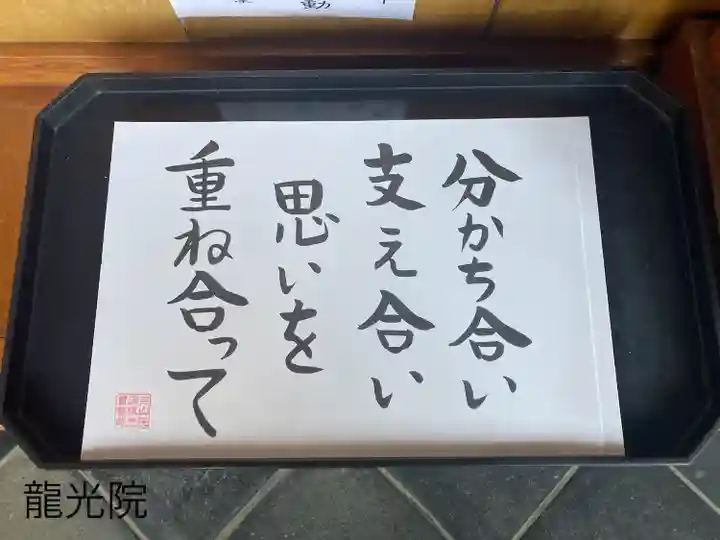 動
分かち合い
支え合い
思いを
重ね合って
龍光院